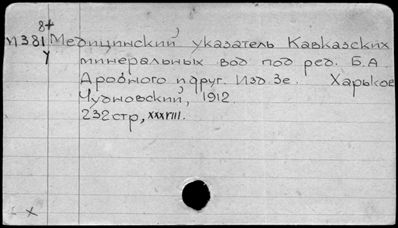 8+
М381 Медицинский указатель Кавказских
у
минеральных вод под ред. Б.А
Дробного и друг. Изд. 3е. Харьков
Чудновский, 1912.
232 стр, XXXVIII.
x